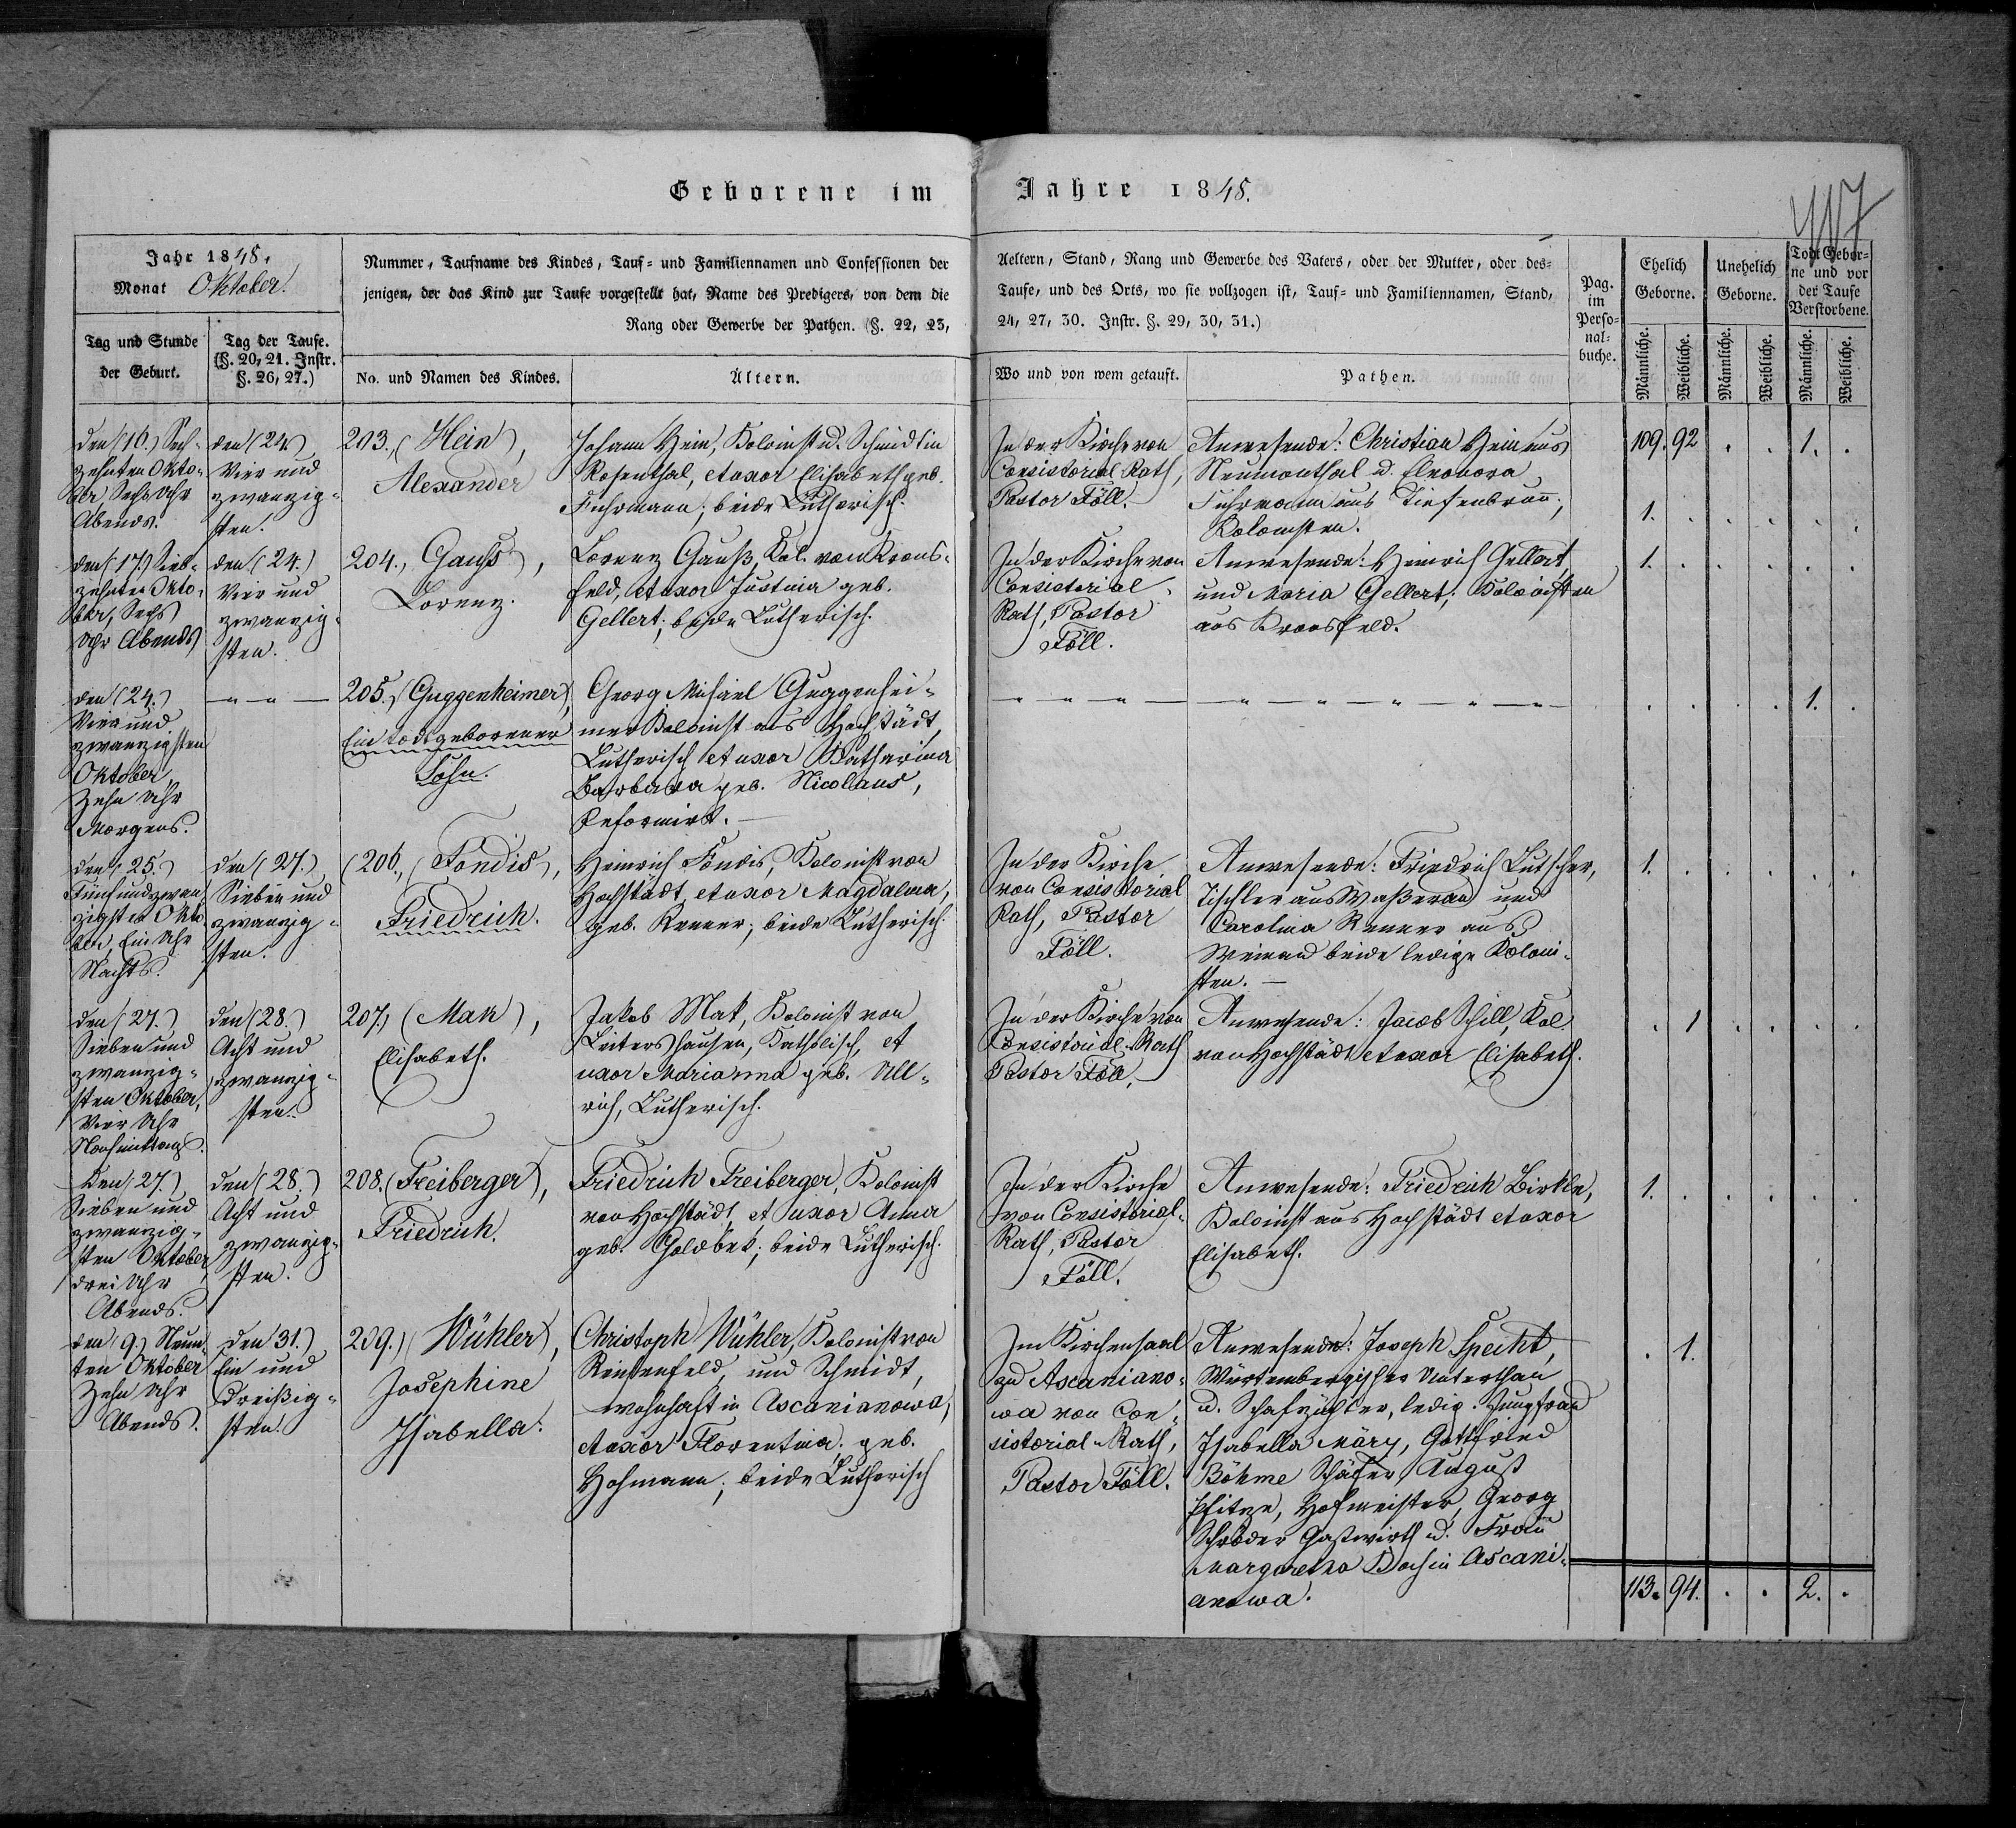 Geborene im Jahre 1848.
417
Jahr 1848.
Monat Oktober.
Tag und Stunde der Geburt.
Tag der Taufe. (§. 20, 21. Instr. §. 26, 27.)
Nummer, Taufname des Kindes, Tauf- und Familiennamen und Confessionen der
jenigen, der das Kind zur Taufe vorgestellt hat, Name des Predigers, von dem die
Rang oder Gewerbe der Pathen. (§. 22, 23,
No. und Namen des Kindes.
Ältern.
Aeltern, Stand, Rang und Gewerbe des Vaters, oder der Mutter, oder des-
Taufe, und des Orts, wo sie vollzogen ist, Tauf- und Familiennamen, Stand,
24, 27, 30. Instr. §. 29, 30, 31.)
Wo und von wem getauft.
Pathen.
Pag. im Perso-nal-buche.
Ehelich Geborne.
Unehelich Geborne.
Todt Gebor-ne und vor der Taufe Verstorbene.
Männliche.
Weibliche.
Männliche.
Weibliche.
Männliche.
Weibliche.
den (16.) Sech-
zehnten Okto-
ber Sechs Uhr
Abends.
den (24.)
Vier und
zwanzig-
sten.
203. (Hein),
Alexander
Johann Hein, Kolonist u. Schmidt in
Rosenthal, et uxor Elisabeth geb.
Fuhrmann; beide Lutherisch.
In der Kirche von
Consistorial-Rath,
Pastor Föll.
Anwesende: Christian Hein aus
Neumonthal u. Eleonora
Fuhrmann aus Tiefenbrunn;
Kolonisten.
109. 92 . . 1. .
1. . . . . .
den (17.) Sieb-
zehnten Okto-
ber, Sechs
Uhr Abends
den (24.)
Vier und
zwanzig-
sten.
204. (Gauß),
Lorenz.
Lorenz Gauß, Kol. von Krons-
feld, et uxor Justina geb.
Gellert; beide Lutherisch.
In der Kirche von
Consistorial-
Rath, Pastor
Föll.
Anwesende: Heinrich Gellert,
und Maria Gellert; Kolonisten
aus Kronsfeld.
1. . . . . .
den (24.)
Vier und
zwanzigsten
Oktober
Zehn Uhr
Morgens.
205. (Guggenheimer),
Ein todtgeborener
Sohn.
Georg Michael Guggenhei-
mer Kolonist aus Hochstädt,
Lutherisch et uxor Katharina
Barbara geb. Nicolaus,
Reformirt.
. . . . 1. .
den (25.)
Fünf und zwan-
zigsten Okto-
ber, Ein Uhr
Nachts.
den (27.)
Sieben und
zwanzig-
sten.
(206. (Fondis),
Friedrich.
Heinrich Fondis, Kolonist von
Hochstädt, et uxor Magdalena,
geb. Renner; beide Lutherisch.
In der Kirche
von Consistorial
Rath, Pastor
Föll.
Anwesende: Friedrich Lutscher,
Tischler aus Waßerau und
Carolina Renner aus
Weinau beide ledige Koloni-
sten.
1. . . . . .
den (27.)
Sieben und
zwanzig-
sten Oktober,
Vier Uhr
Nachmittags.
den (28.)
Acht und
zwanzig-
sten.
207. (Mak),
Elisabeth.
Jakob Mak, Kolonist von
Leitershausen, Katholisch, et
uxor Marianna geb. Ull-
rich, Lutherisch.
In der Kirche von
Consistorial-Rath
Pastor Föll,
Anwesende: Jacob Schill, Kol.
von Hochstädt et uxor Elisabeth.
. 1 . . . .
den (27.)
Sieben und
zwanzig-
sten Oktober
drei Uhr
Abends.
den (28.)
Acht und
zwanzig-
sten.
208. (Freiberger),
Friedrich.
Friedrich Freiberger, Kolonist
von Hochstädt, et uxor Anna
geb. Goldbek; beide Lutherisch.
In der Kirche
von Consistorial-
Rath, Pastor
Föll.
Anwesende: Friedrich Birkle,
Kolonist aus Hochstädt et uxor
Elisabeth.
1. . . . . .
den (9.) Neun-
ten Oktober
Zehn Uhr
Abends.
den 31.)
Ein und
dreißig-
sten.
209.) (Wühler),
Josephine
Isabella.
Christoph Wühler, Kolonist von
Reichenfeld, und Schmidt,
wohnhaft in Ascanianowa,
et uxor Florentina geb.
Hofmann; beide Lutherisch
Im Kirchensaal
zu Ascaniano-
wa von Con-
sistorial-Rath,
Pastor Föll.
Anwesende: Joseph Specht,
Würtembergischer Unterthan
u. Schafzüchter, ledig. Jungfrau
Isabella Märy, Gottfried
Böhme Schäfer, August
Pfitze, Hofmeister, Georg
Schröder Gastwirth u. Frau
Margaretha Koch in Ascani-
anowa.
. 1.
113. 94. . . 2. .